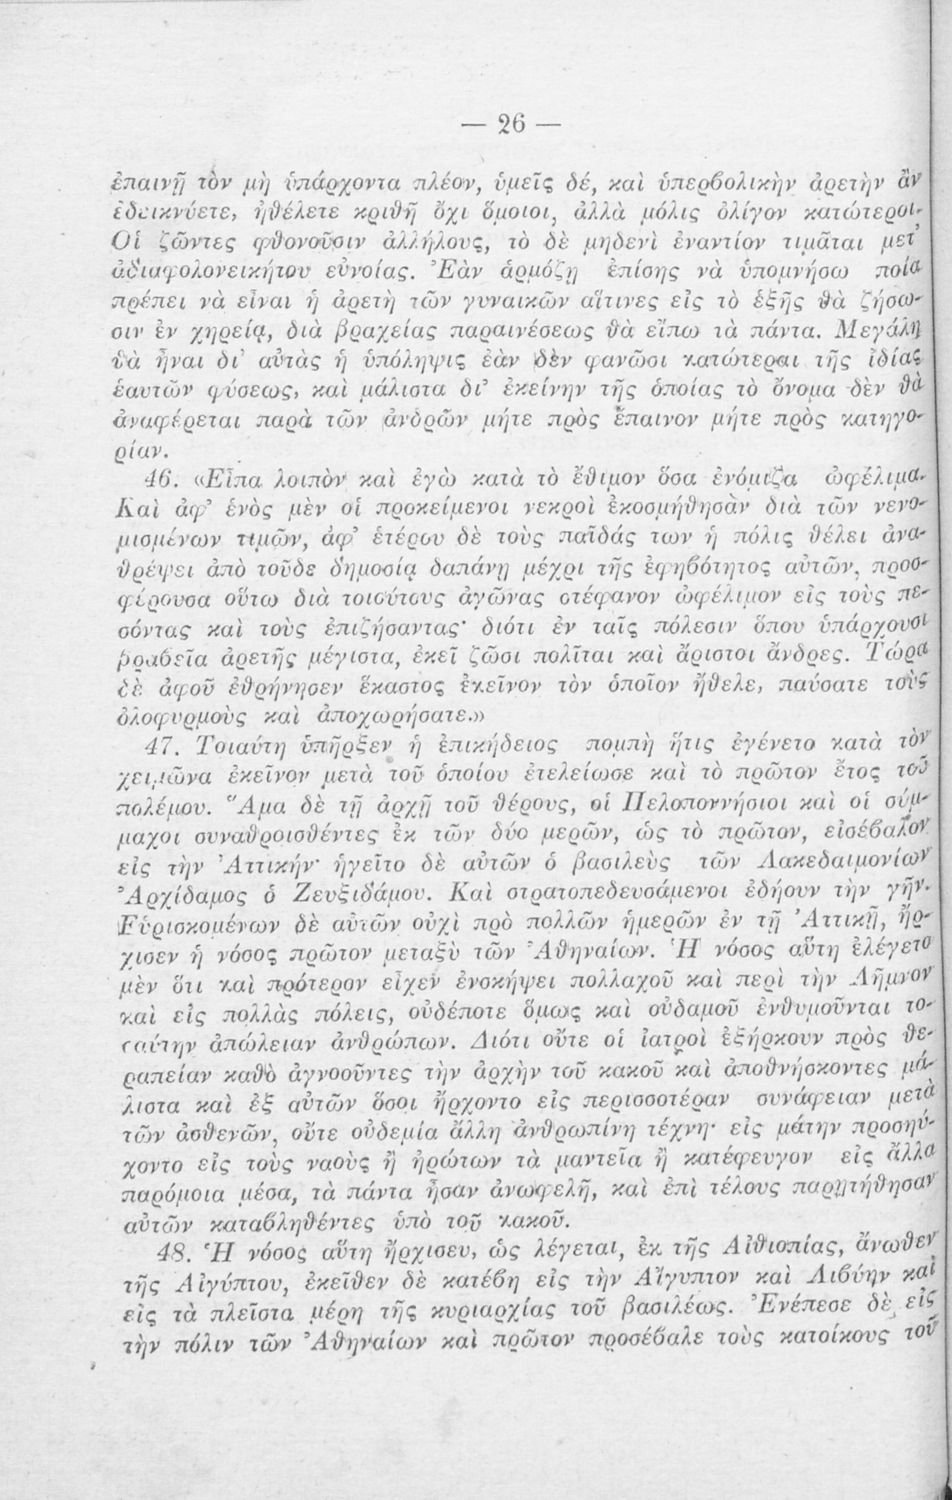 — 26 —
ἐπαινῇ τὸν μὴ ὑπάρχοντα πλέον, ὑμεῖς δέ, καὶ ὑπερβολικὴν ἀρετὴν ἂν
ἐδεικνύετε, ἠθέλετε κριθῆ ὄχι ὅμοιοι, ἀλλὰ μόλις ὀλίγον κατώτεροι.
Οἱ ζῶντες φθονοῦσιν ἀλλήλους, τὸ δὲ μηδενὶ ἐναντίον τιμᾶται μετ’
ἀδιαφολονεικήτου εὐνοίας. Ἐὰν ἁρμόζῃ ἐπίσης νὰ ὑπομνήσω ποία
πρέπει νὰ εἶναι ἡ ἀρετὴ τῶν γυναικῶν αἵτινες εἰς τὸ ἑξῆς θὰ ζήσω-
σιν ἐν χηρείᾳ, διὰ βραχείας παραινέσεως θὰ εἴπω τὰ πάντα. Μεγάλη
θὰ ἦναι δι’ αὐτὰς ἡ ὑπόληψις ἐὰν δὲν φανῶσι κατώτεραι τῆς ἰδίας
ἑαυτῶν φύσεως, καὶ μάλιστα δι’ ἐκείνην τῆς ὁποίας τὸ ὄνομα δὲν θὰ
ἀναφέρεται παρὰ τῶν ἀνδρῶν μήτε πρὸς ἔπαινον μήτε πρὸς κατηγο-
ρίαν.
46. «Εἶπα λοιπὸν καὶ ἐγὼ κατὰ τὸ ἔθιμον ὅσα ἐνόμιζα ὠφέλιμα.
Καὶ ἀφ’ ἑνὸς μὲν οἱ προκείμενοι νεκροὶ ἐκοσμήθησὰν διὰ τῶν νενο-
μισμένων τιμῶν, ἀφ’ ἑτέρου δὲ τοὺς παῖδάς των ἡ πόλις θέλει ἀνα-
θρέψει ἀπὸ τοῦδε δημοσίᾳ δαπάνῃ μέχρι τῆς ἐφηβότητος αὐτῶν, προσ-
φέρουσα οὕτω διὰ τοιούτους ἀγῶνας στέφανον ὠφέλιμον εἰς τοὺς πε-
σόντας καὶ τοὺς ἐπιζήσαντας· διότι ἐν ταῖς πόλεσιν ὅπου ὑπάρχουσι
βραβεῖα ἀρετῆς μέγιστα, ἐκεῖ ζῶσι πολῖται καὶ ἄριστοι ἄνδρες. Τώρα
δὲ ἀφοῦ ἐθρήνησεν ἕκαστος ἐκεῖνον τὸν ὁποῖον ἤθελε, παύσατε τοὺς
ὀλοφυρμοὺς καὶ ἀποχωρήσατε.»
47. Τοιαύτη ὑπῆρξεν ἡ ἐπικήδειος πομπὴ ἥτις ἐγένετο κατὰ τὸν
χειμῶνα ἐκεῖνον μετὰ τοῦ ὁποίου ἐτελείωσε καὶ τὸ πρῶτον ἔτος τοῦ
πολέμου. Ἅμα δὲ τῇ ἀρχῇ τοῦ θέρους, οἱ Πελοποννήσιοι καὶ οἱ σύμ-
μαχοι συναθροισθέντες ἐκ τῶν δύο μερῶν, ὡς τὸ πρῶτον, εἰσέβαλον
εἰς τὴν Ἀττικήν· ἡγεῖτο δὲ αὐτῶν ὁ βασιλεὺς τῶν Λακεδαιμονίων
Ἀρχίδαμος ὁ Ζευξιδάμου. Καὶ στρατοπεδευσάμενοι ἐδήουν τὴν γῆν.
Εὑρισκομένων δὲ αὐτῶν οὐχὶ πρὸ πολλῶν ἡμερῶν ἐν τῇ Ἀττικῇ, ἤρ-
χισεν ἡ νόσος πρῶτον μεταξὺ τῶν Ἀθηναίων. Ἡ νόσος αὕτη ἐλέγετο
μὲν ὅτι καὶ πρότερον εἶχεν ἐνσκήψει πολλαχοῦ καὶ περὶ τὴν Λῆμνον
καὶ εἰς πολλὰς πόλεις, οὐδέποτε ὅμως καὶ οὐδαμοῦ ἐνθυμοῦνται το-
σαύτην ἀπώλειαν ἀνθρώπων. Διότι οὔτε οἱ ἰατροὶ ἐξήρκουν πρὸς θε-
ραπείαν καθὸ ἀγνοοῦντες τὴν ἀρχὴν τοῦ κακοῦ καὶ ἀποθνήσκοντες μά-
λιστα καὶ ἐξ αὐτῶν ὅσοι ἤρχοντο εἰς περισσοτέραν συνάφειαν μετὰ
τῶν ἀσθενῶν, οὔτε οὐδεμία ἄλλη ἀνθρωπίνη τέχνη· εἰς μάτην προσηύ-
χοντο εἰς τοὺς ναοὺς ἢ ἠρώτων τὰ μαντεῖα ἢ κατέφευγον εἰς ἄλλα
παρόμοια μέσα, τὰ πάντα ἦσαν ἀνωφελῆ, καὶ ἐπὶ τέλους παρῃτήθησαν
αὐτῶν καταβληθέντες ὑπὸ τοῦ κακοῦ.
48. Ἡ νόσος αὕτη ἤρχισεν, ὡς λέγεται, ἐκ τῆς Αἰθιοπίας, ἄνωθεν
τῆς Αἰγύπτου, ἐκεῖθεν δὲ κατέβη εἰς τὴν Αἴγυπτον καὶ Λιβύην καὶ
εἰς τὰ πλεῖστα μέρη τῆς κυριαρχίας τοῦ βασιλέως. Ἐνέπεσε δὲ εἰς
τὴν πόλιν τῶν Ἀθηναίων καὶ πρῶτον προσέβαλε τοὺς κατοίκους τοῦ